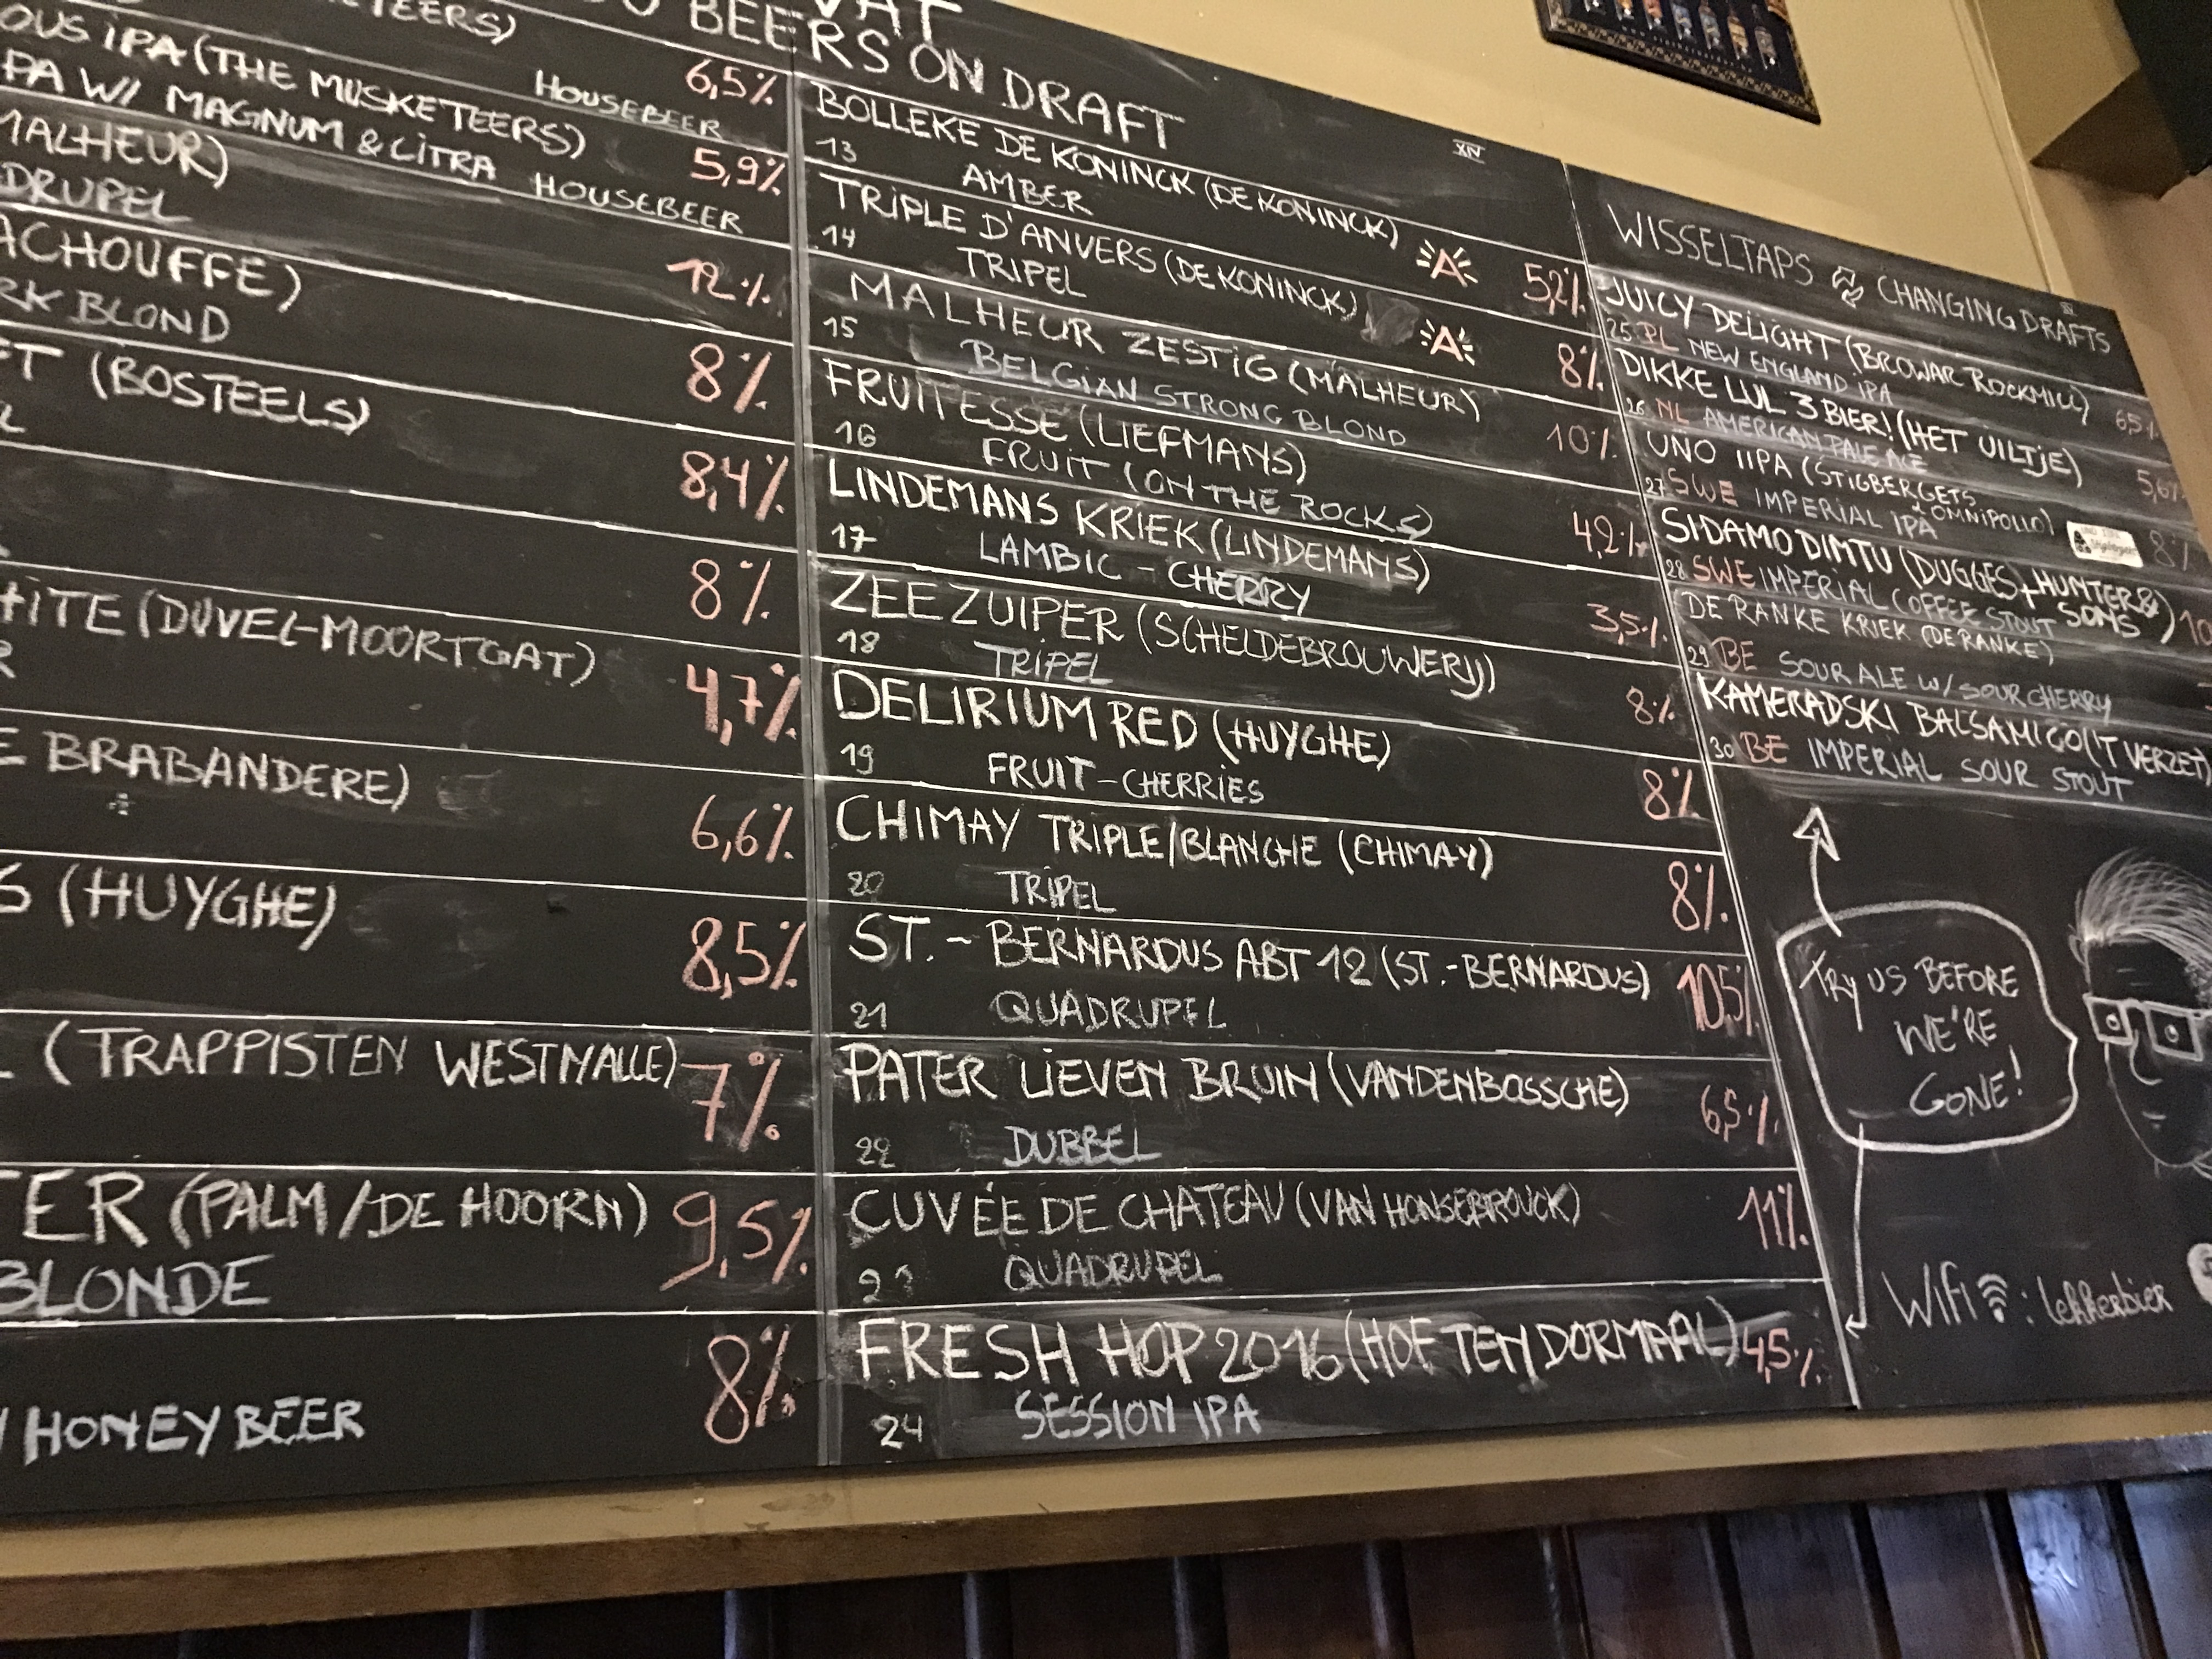 VAT
BEERS ON DRAFT
6,5%
HOUSEBEER
IPA (THE MUSKETEERS)
5,9%
W/ MAGNUM & CITRA HOUSEBEER
MALHEUR)
12%
ACHOUFFE)
8%
BLOND
(BOSTEELS)
8,4%
8%
(DUVEL-MOORTGAT)
4,7%
BRABANDERE)
6,6%
(HUYGHE)
8,5%
(TRAPPISTEN WESTMALLE)
7%
(PALM/DE HOORN)
9,5%
BLONDE
8%
HONEY BEER
BOLLEKE DE KONINCK (DE KONINCK)
13 AMBER
A 5,2%
TRIPLE D'ANVERS (DE KONINCK)
14 TRIPEL
A 8%
MALHEUR ZESTIG (MALHEUR)
15 BELGIAN STRONG BLOND
10%
FRUITESSE (LIEFMANS)
16 FRUIT (ON THE ROCKS)
4,2%
LINDEMANS KRIEK (LINDEMANS)
17 LAMBIC - CHERRY
3,5%
ZEEZUIPER (SCHELDEBROUWERIJ)
18 TRIPEL
8%
DELIRIUM RED (HUYGHE)
19 FRUIT - CHERRIES
8%
CHIMAY TRIPLE/BLANCHE (CHIMAY)
20 TRIPEL
8%
ST. - BERNARDUS ABT 12 (ST. - BERNARDUS)
21 QUADRUPEL
10,5%
PATER LIEVEN BRUIN (VANDENBOSSCHE)
22 DUBBEL
6,5%
CUVÉE DE CHATEAU (VAN HONSEBROUCK)
23 QUADRUPEL
11%
FRESH HOP 2016 (HOF TEN DORMAAL)
4,5%
24 SESSION IPA
WISSELTAPS CHANGING DRAFTS
JUICY DELIGHT (BROWAR ROCKMILL)
25 PL NEW ENGLAND IPA
6,5%
DIKKE LUL 3 BIER! (HET UILTJE)
26 NL AMERICAN PALE ALE
5,6%
UNO IIPA (STIGBERGETS
& OMNIPOLLO)
27 SWE IMPERIAL IPA
8%
SIDAMO DIMTU (DUGGES + HUNTER &
SONS)
28 SWE IMPERIAL COFFEE STOUT
10
DE RANKE KRIEK (DE RANKE)
29 BE SOUR ALE W/ SOUR CHERRY
KAMERADSKI BALSAMICO ('T VERZET)
30 BE IMPERIAL SOUR STOUT
TRY US BEFORE
WE'RE
GONE!
WIFI : lekkerbier